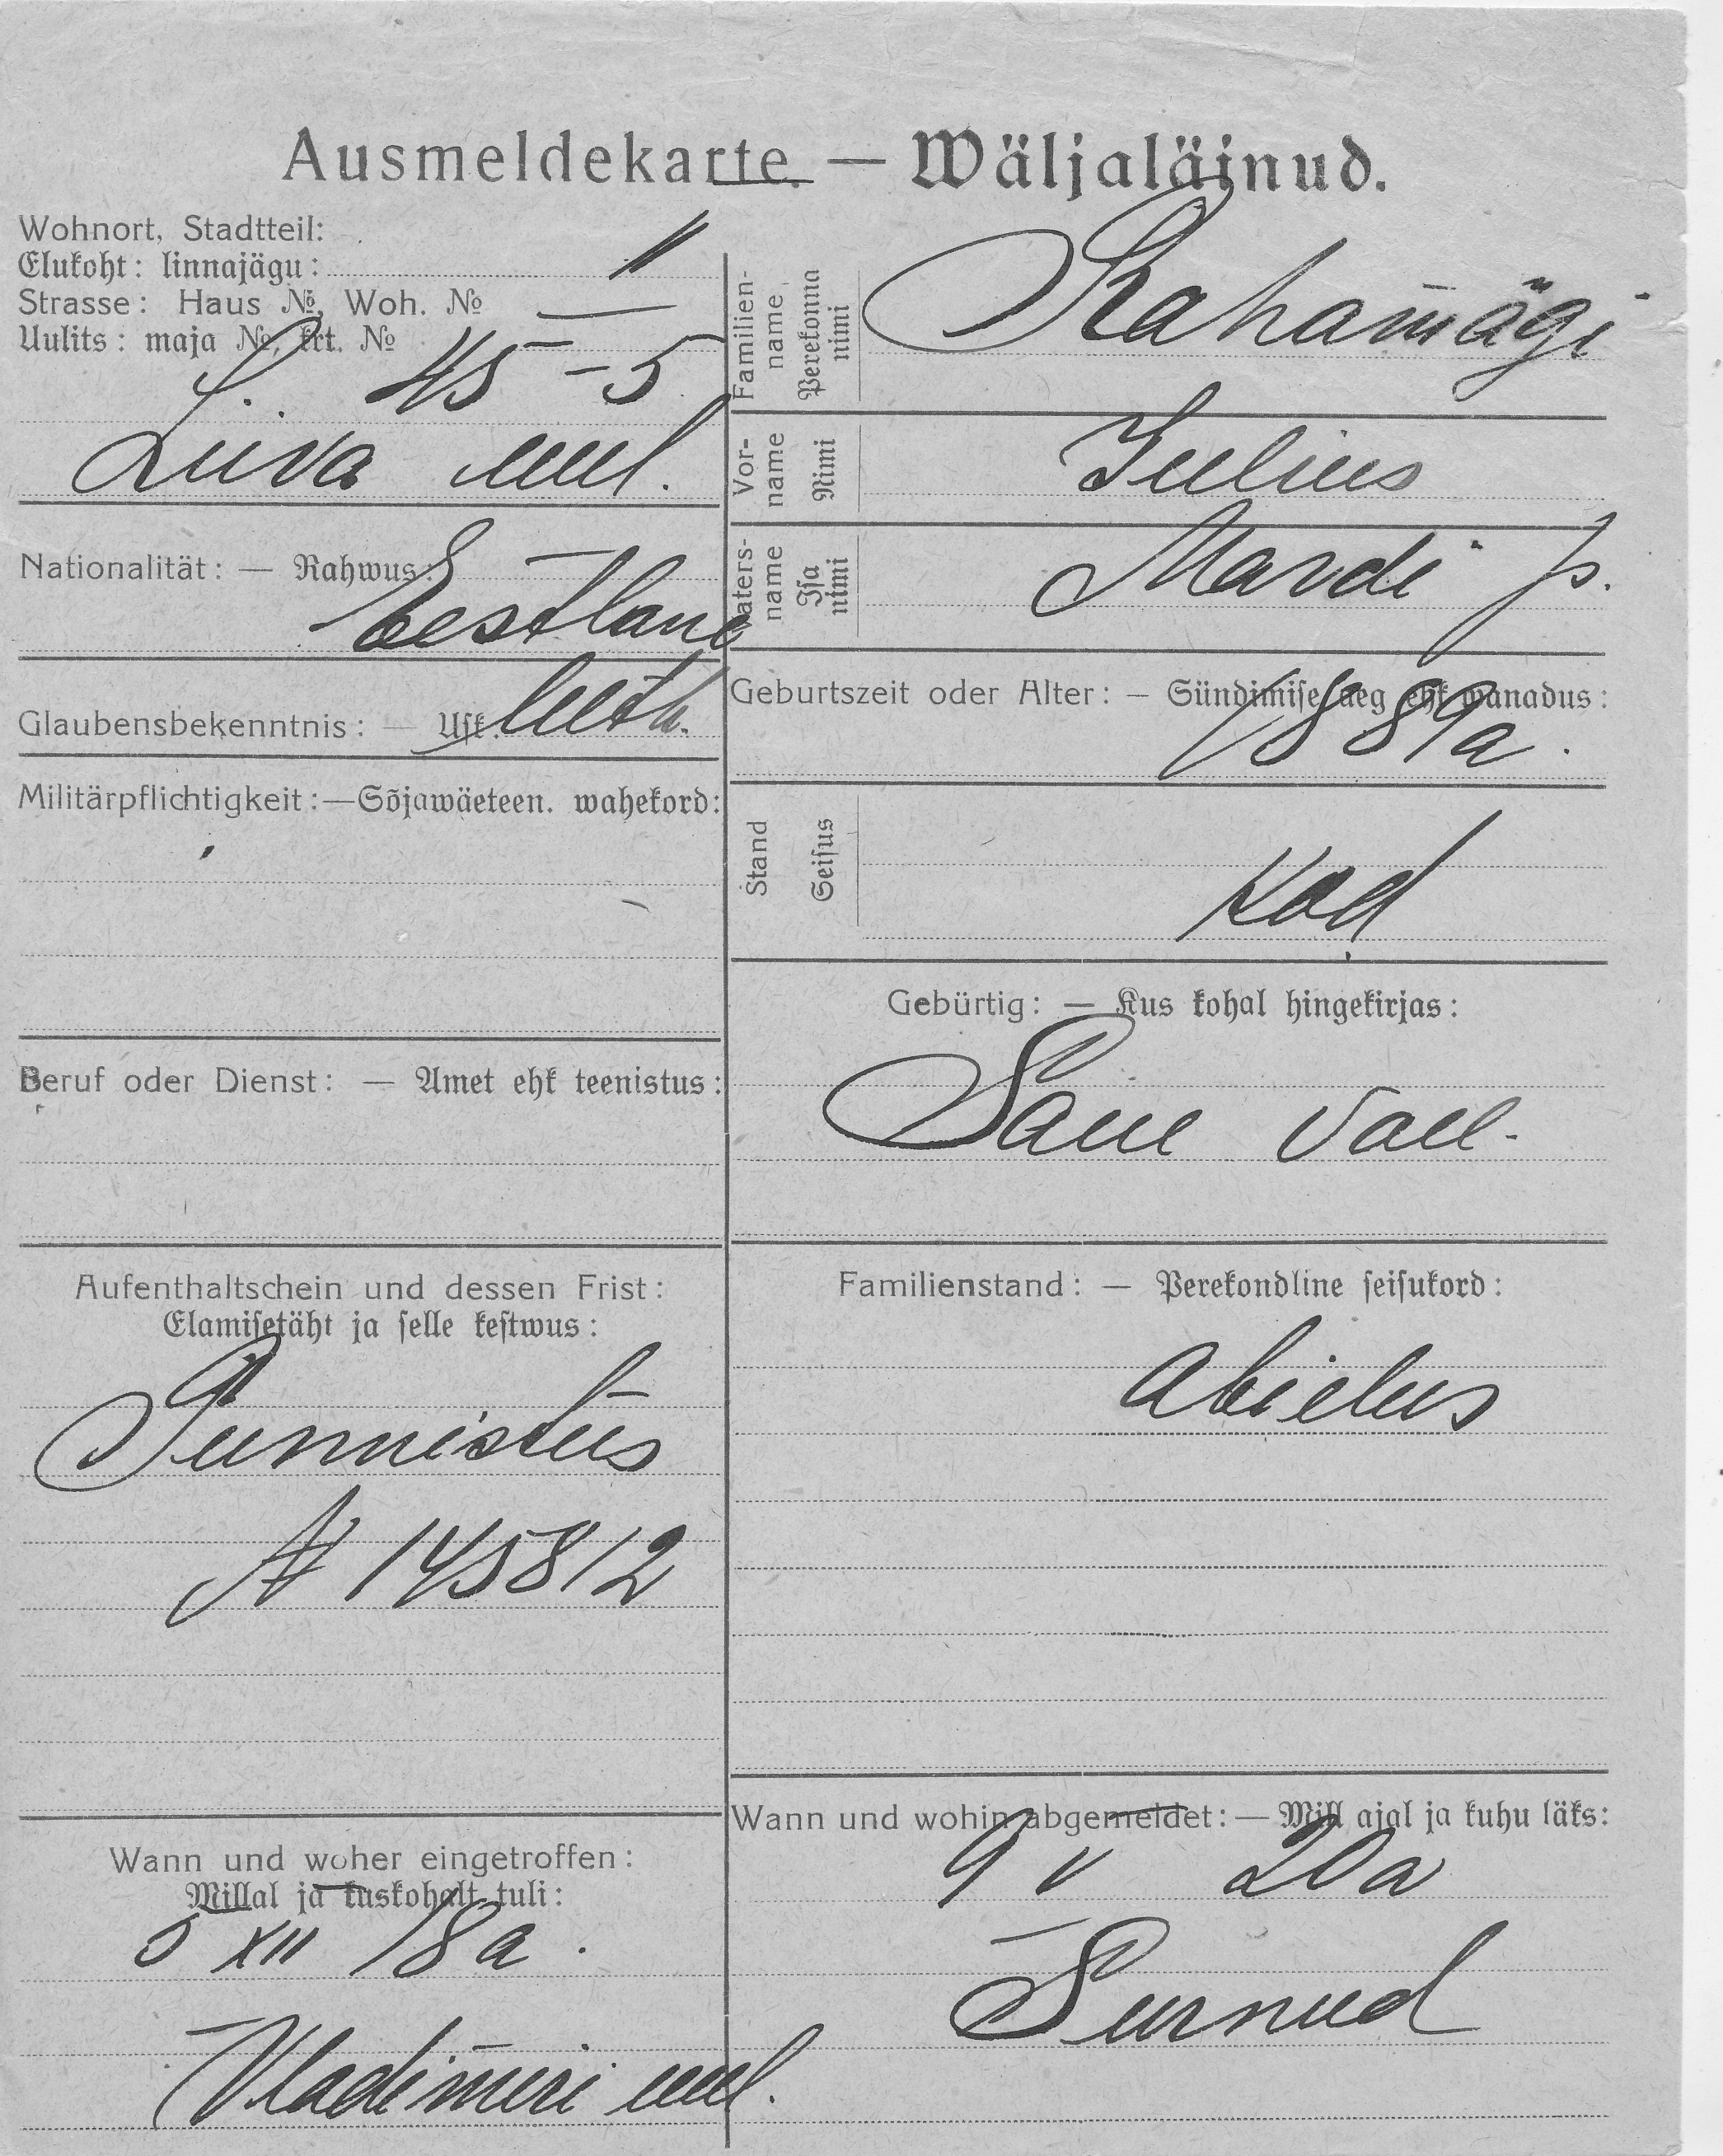 Ausmeldekarte. — Wäljaläinud.
Wohnort, Stadtteil:
Elukoht: linnajägu: II
Strasse: Haus №, Woh. №
Uulits: maja №, krt. №
L. 45 - 5
Liiva uul.
Nationalität: — Rahwus:
Eestlane
Glaubensbekenntnis: — Usk. luth.
Militärpflichtigkeit:—Sõjawäeteen. wahekord:
Beruf oder Dienst: — Amet ehk teenistus:
Aufenthaltschein und dessen Frist:
Elamisetäht ja selle kestwus:
Tunnistus
№ 145812
Wann und woher eingetroffen:
Millal ja kuskohalt tuli:
5 XII 18 a.
Vladimiri uul.
Familien-name, Perekonna nimi
Rahamägi
Vor-name Nimi
Julius
Vaters-name Isa nimi
Mardi p.
Geburtszeit oder Alter: — Sündimise aeg ehk wanadus:
1889 a.
Stand Seisus
Kod
Gebürtig: — Kus kohal hingekirjas:
Saue vall.
Familienstand: — Perekondline seisukord:
abielus
Wann und wohin abgemeldet: — Mill ajal ja kuhu läks:
9 V 20 a
Surnud